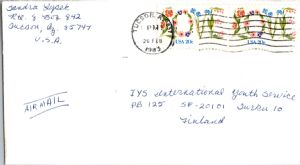 Sandra Hysek
Rt. 8 Box 842
Tucson, Az. 85747
U.S.A.
TUCSON, AZ
PM
26 FEB
1983
USA 20c
USA 20c
AIR MAIL
IYS International Youth Service
PB 125 SF-20101 Turku 10
Finland